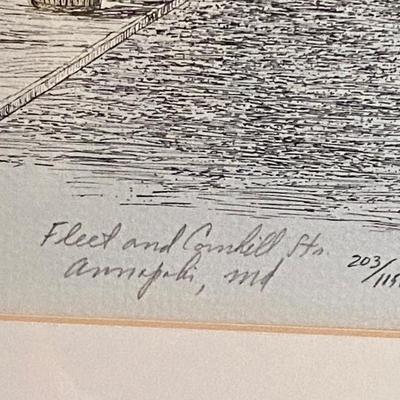 Fleet and Cornhill Sts.
Annapolis, Md
203/